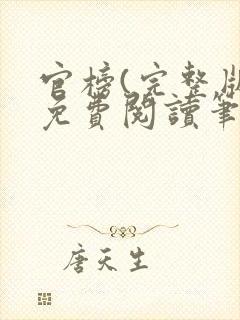 官榜(完整版
免費閱讀筆
唐天生